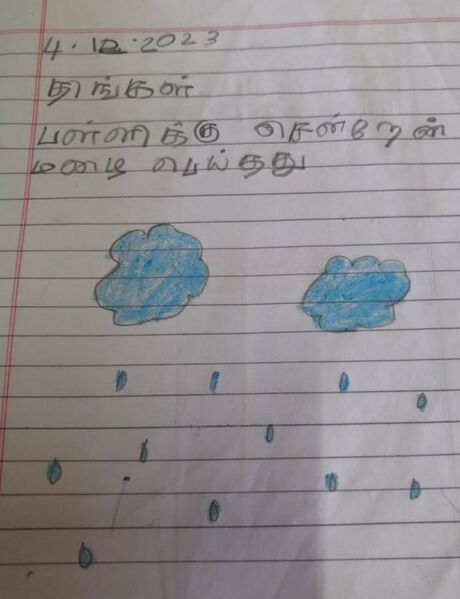 4.12.2023
திங்கள்
பள்ளிக்கு சென்றேன்
மழை பெய்தது